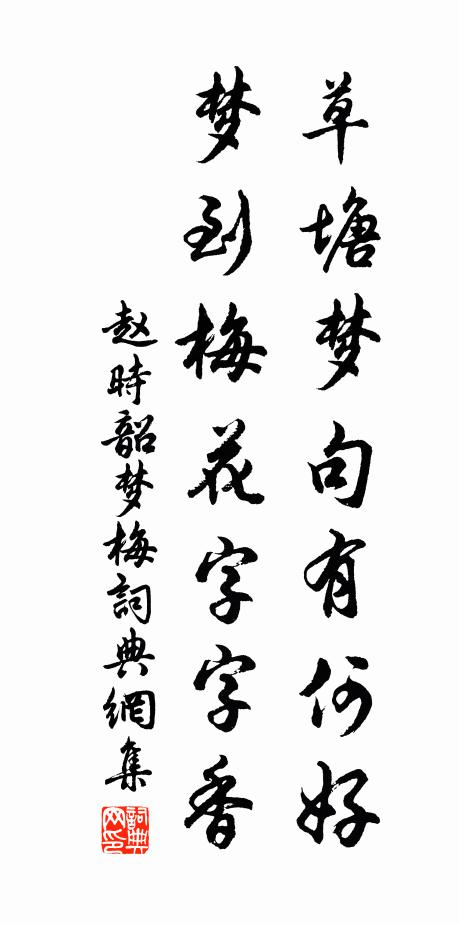 草塘梦句有何好
梦到梅花字字香
赵時韶梦梅詞典網集
詞典网印